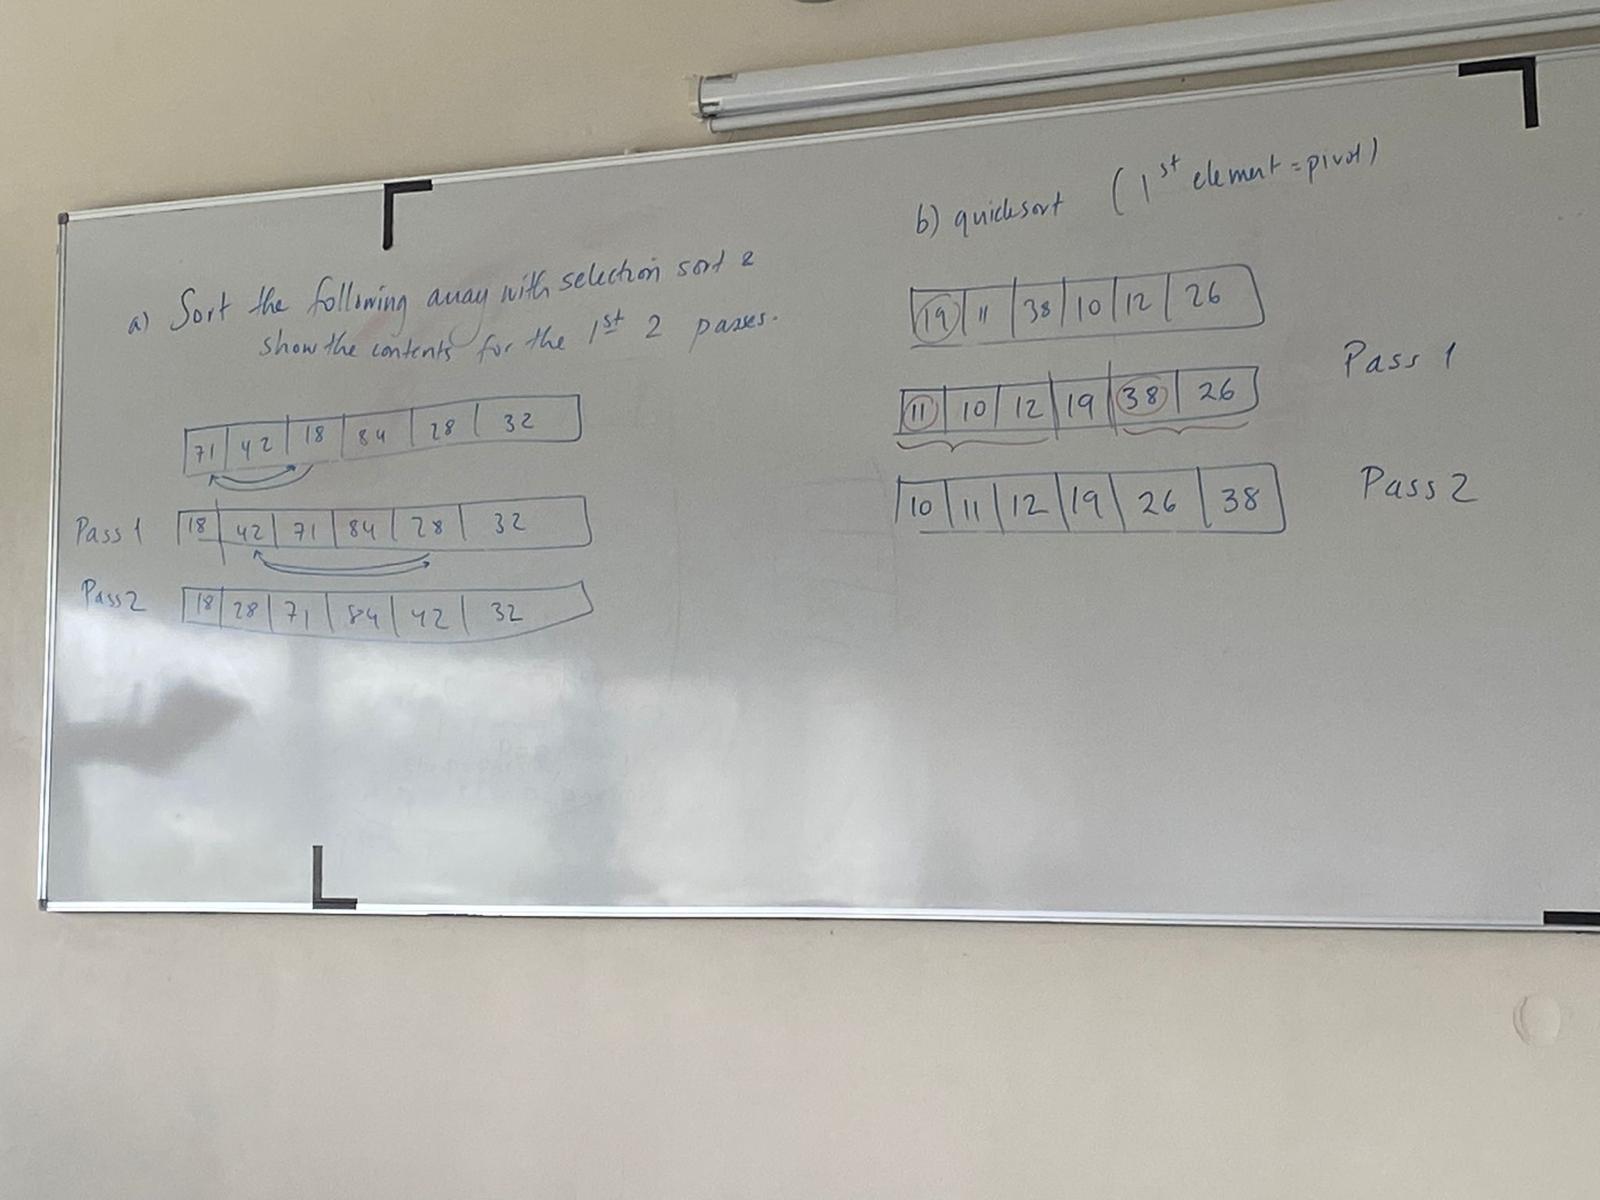 a) Sort the following array with selection sort &
show the contents for the 1st 2 passes.
71 42 18 84 28 32
Pass 1 18 42 71 84 28 32
Pass 2 18 28 71 84 42 32
b) quicksort (1st element = pivot)
19 11 38 10 12 26
11 10 12 19 38 26 Pass 1
10 11 12 19 26 38 Pass 2